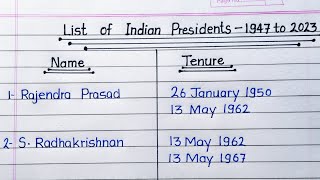 List of Indian Presidents - 1947 to 2023
Name Tenure
1- Rajendra Prasad 26 January 1950
13 May 1962
2- S. Radhakrishnan 13 May 1962
13 May 1967